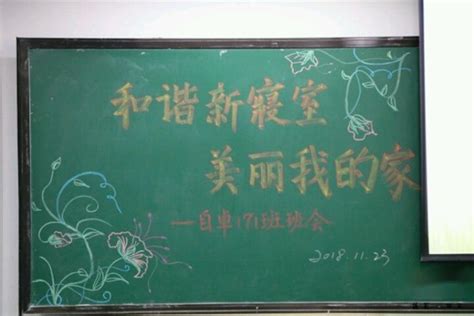 和谐新寝室
美丽我的家
——自卓171班班会
2018.11.23